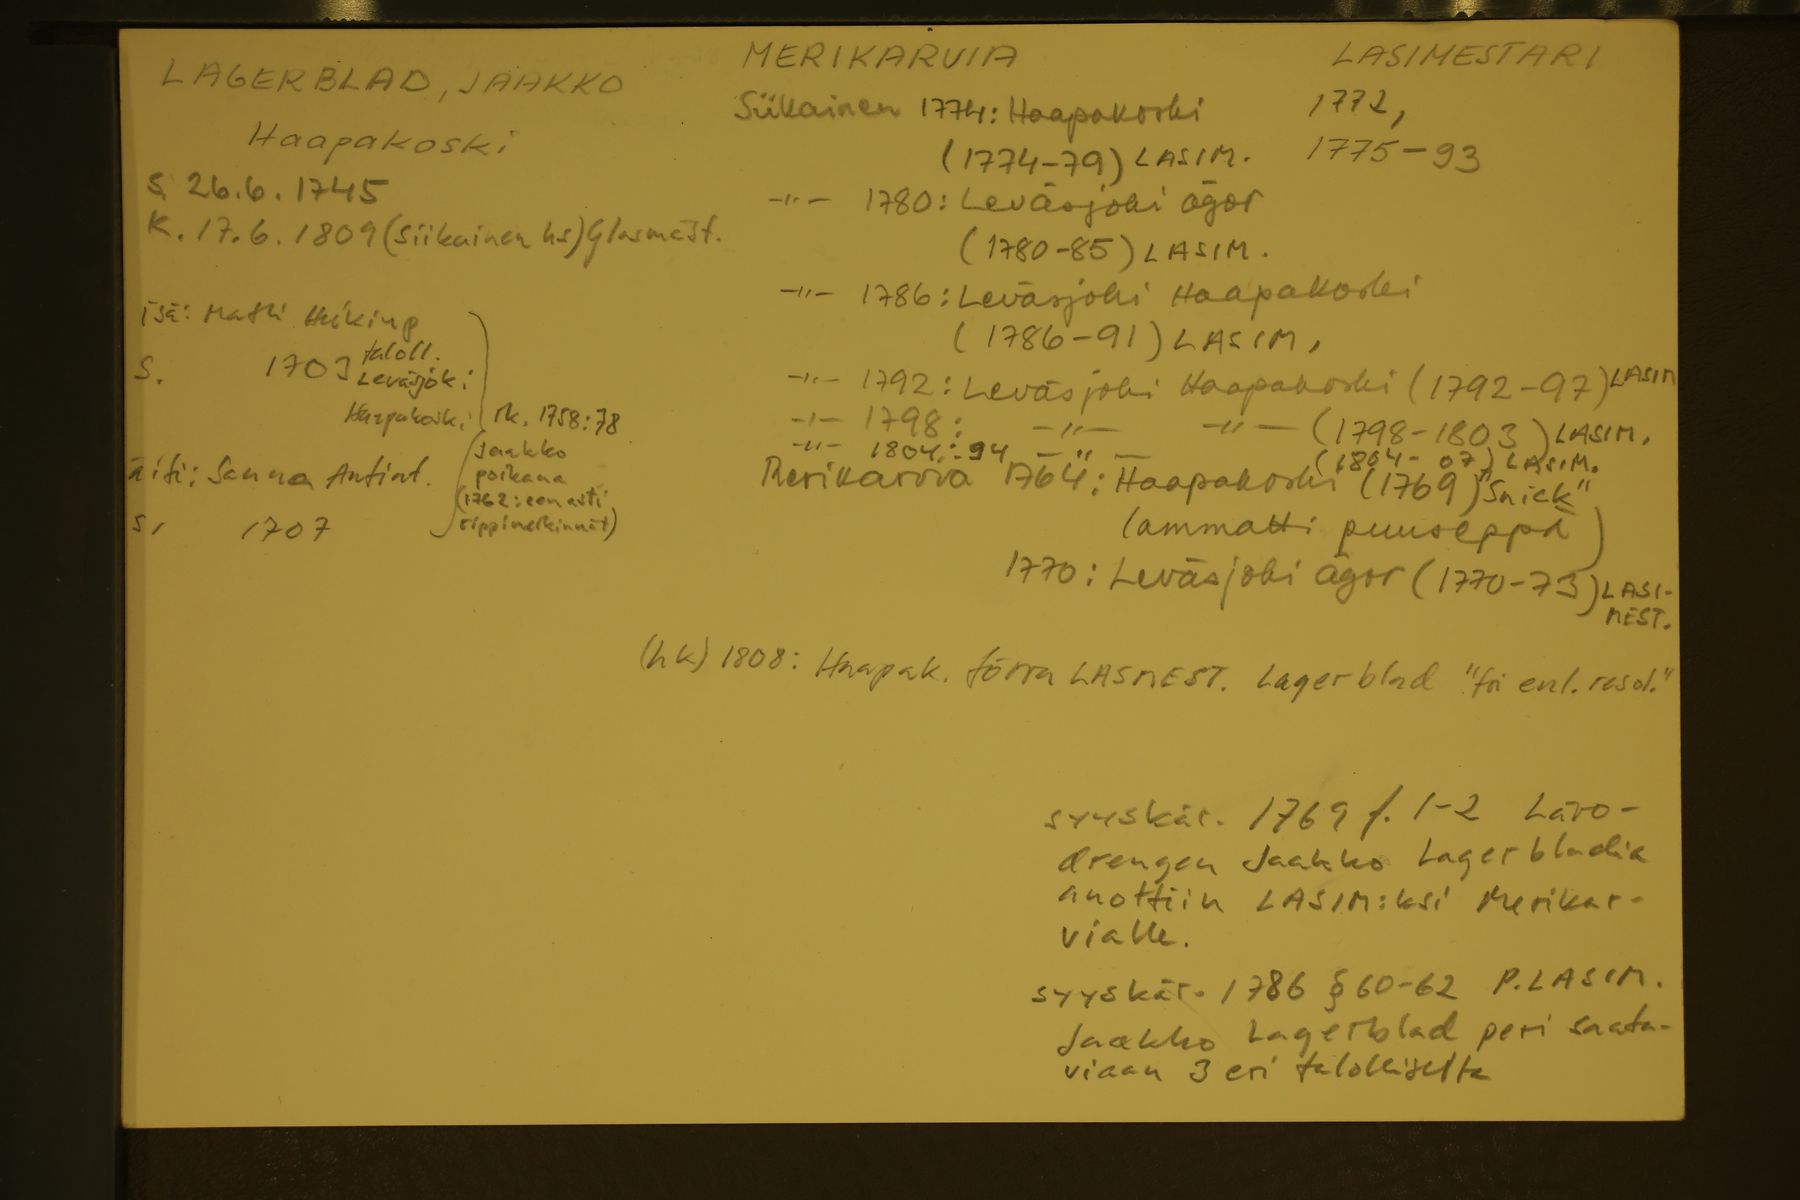 LAGERBLAD, JAAKKO
Haapakoski
S. 26.6. 1745
K. 17.6. 1809 (Siikainen hs) Glasmäst.
isä: Matti Heikinp
S. 1703 taloll.
Leväsjoki
Haapakoski
rk. 1758:78
Jaakko
poikana
(1762: ensi
rippimerkinnät)
äiti: Sanna Antint.
S, 1707
MERIKARVIA
LASIMESTARI
1772,
1775-93
Siikainen 1774: Haapakoski
(1774-79) LASIM.
-"- 1780: Leväsjoki ägor
(1780-85) LASIM.
-"- 1786: Leväsjoki Haapakoski
(1786-91) LASIM,
-"- 1792: Leväsjoki Haapakoski (1792-97) LASIM
-"- 1798: -"- -"- (1798-1803) LASIM.
-"- 1804:94 -"- (1804-07) LASIM.
Merikarvia 1764: Haapakoski (1769) "Snick"
(ammatti puuseppä)
1770: Leväsjoki ägor (1770-73) LASI-
MEST.
(hk) 1808: Haapak. förra LASMEST. Lagerblad "fri enl. resol."
syyskär. 1769 f. 1-2 Läro-
drengen Jaakko Lagerbladia
anottiin LASIM:ksi Merikar-
vialle.
syyskär. 1786 § 60-62 P. LASIM.
Jaakko Lagerblad peri saata-
viaan 3 eri talolliselta